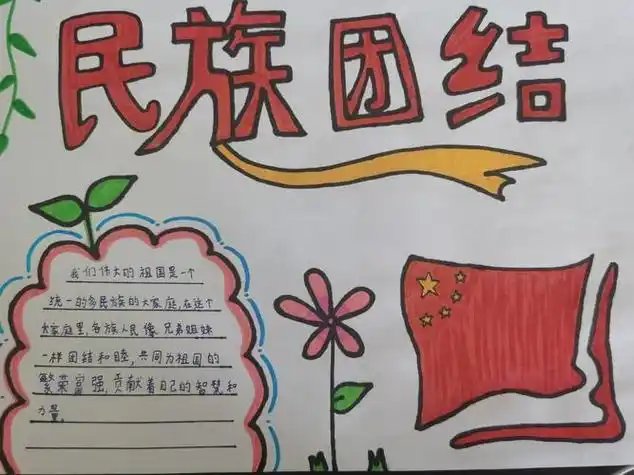 民族团结
我们伟大的祖国是一个
统一的多民族的大家庭,在这个
大家庭里,各族人民像兄弟姐妹
一样团结和睦,共同为祖国的
繁荣富强,贡献着自己的智慧和
力量。